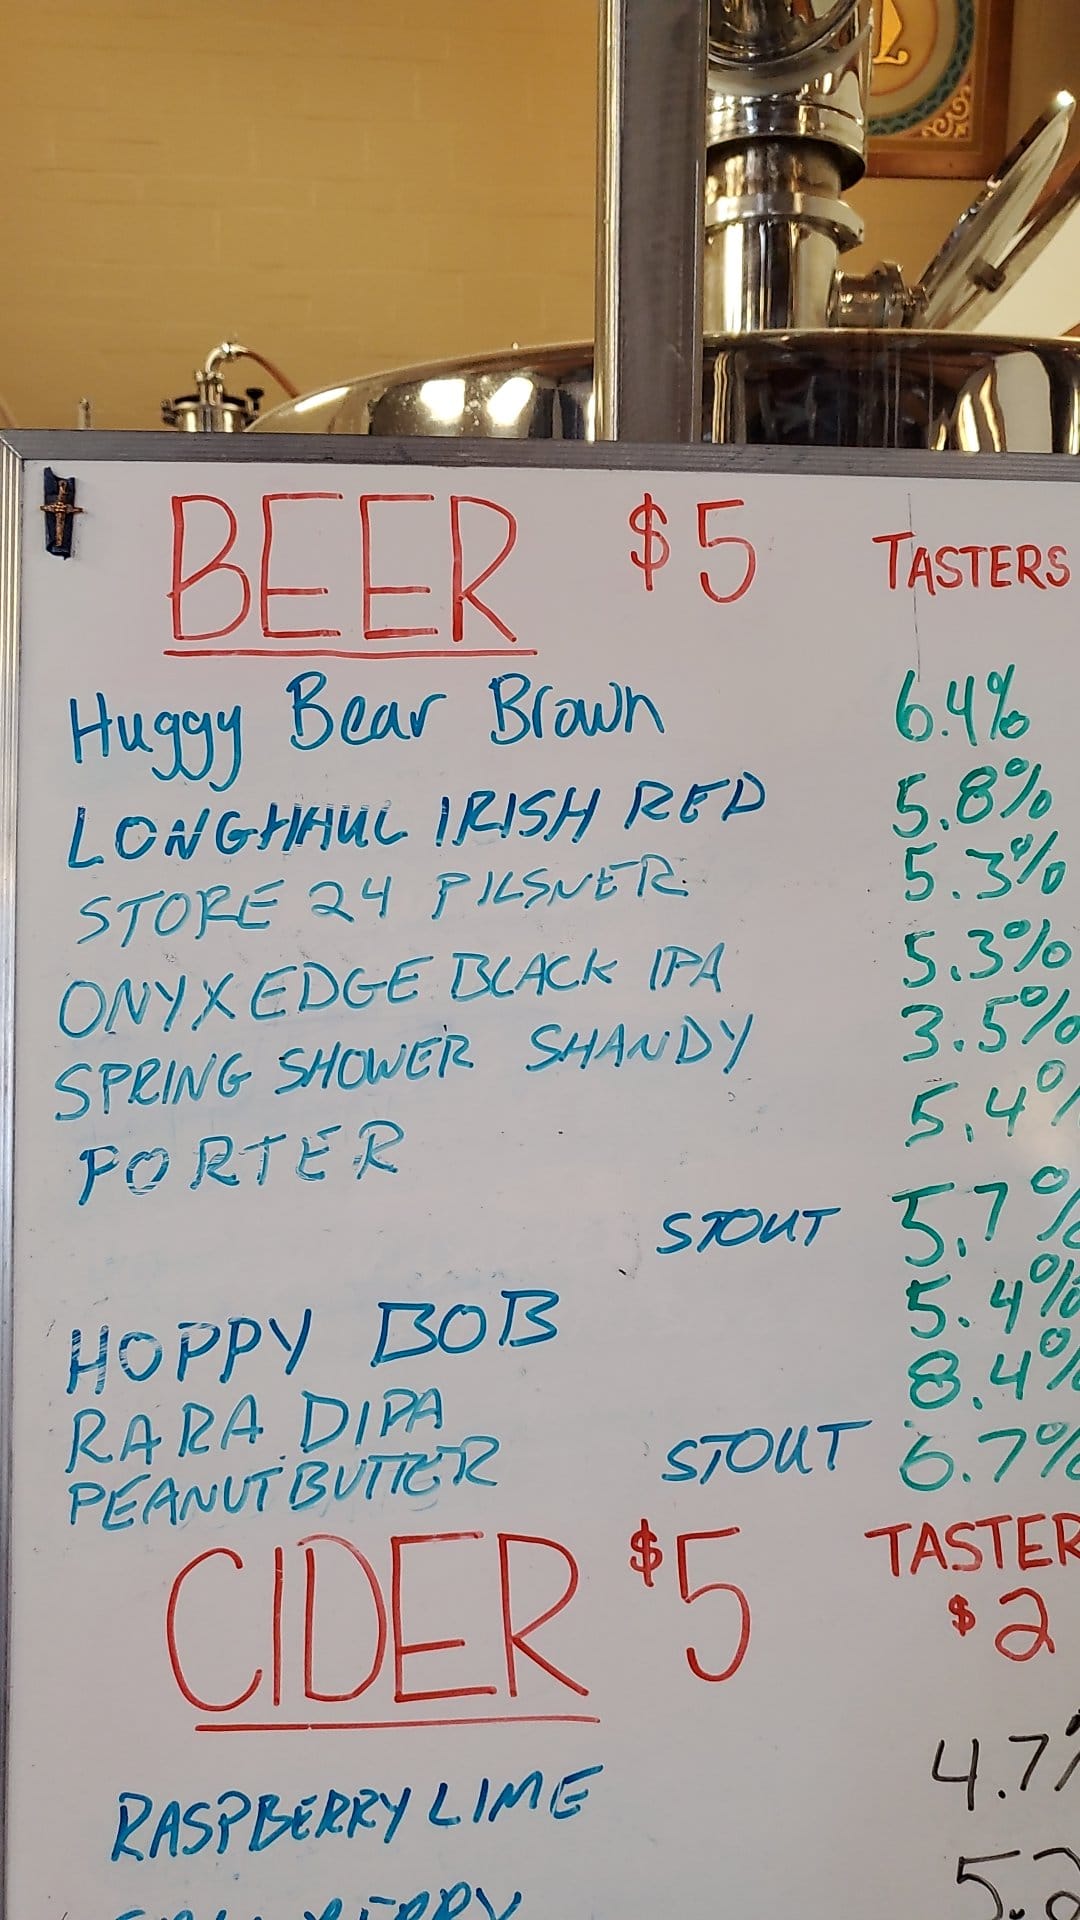 BEER $5 TASTERS
Huggy Bear Brown 6.4%
LONGHAUL IRISH RED 5.8%
STORE 24 PILSNER 5.3%
ONYX EDGE BLACK IPA 5.3%
SPRING SHOWER SHANDY 3.5%
PORTER 5.4%
STOUT 5.7%
HOPPY BOB 5.4%
RARA DIPA 8.4%
PEANUT BUTTER STOUT 6.7%
CIDER $5 TASTER
$2
RASPBERRY LIME 4.7%
5.2